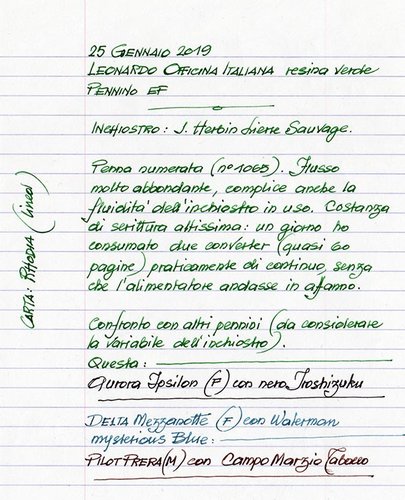 25 GENNAIO 2019
LEONARDO OFFICINA ITALIANA resina verde
PENNINO EF
INCHIOSTRO: J. Herbin Lierre Sauvage.
Penna numerata (n° 1065). Flusso
molto abbondante, complice anche la
fluidità dell'inchiostro in uso. Costanza
di scrittura altissima: un giorno ho
consumato due converter (quasi 60
pagine) praticamente di continuo, senza
che l'alimentatore andasse in affanno.
Confronto con altri pennini (da considerare
la variabile dell'inchiostro).
Questa:
Aurora Ipsilon (F) con nero Iroshizuku
DELTA Mezzanotte (F) con Waterman
mysterious Blue:
PILOT PRERA (M) con Campo Marzio Tabacco
CARTA: RHODIA (lined)